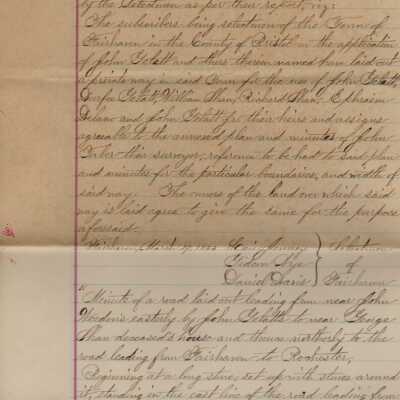 by the Selectmen as per their report, viz;
The subscribers being selectmen of the Town of
Fairhaven in the County of Bristol on the application
of John and others therein named have laid out
a private way in said Town for the use of John
William Shaw, Richard Shaw, Ephraim
Delano and John for their heirs and assigns
agreeable to the annexed plan and minutes of John
Taber their surveyor, reference to be had to said plan
and minutes for the particular boundaries, and width of
said way. The owners of the land over which said
way is laid agree to give the same for the purpose
aforesaid.
Fairhaven, Selectmen
Nye of
David Davis Fairhaven
"Minute of a road laid out leading from near John
easterly by John to near George
Shaw deceased's house and thence northerly to the
road leading from Fairhaven to Rochester,
Beginning at a long stone, set up with stones around
it, standing in the east line of the road leading from